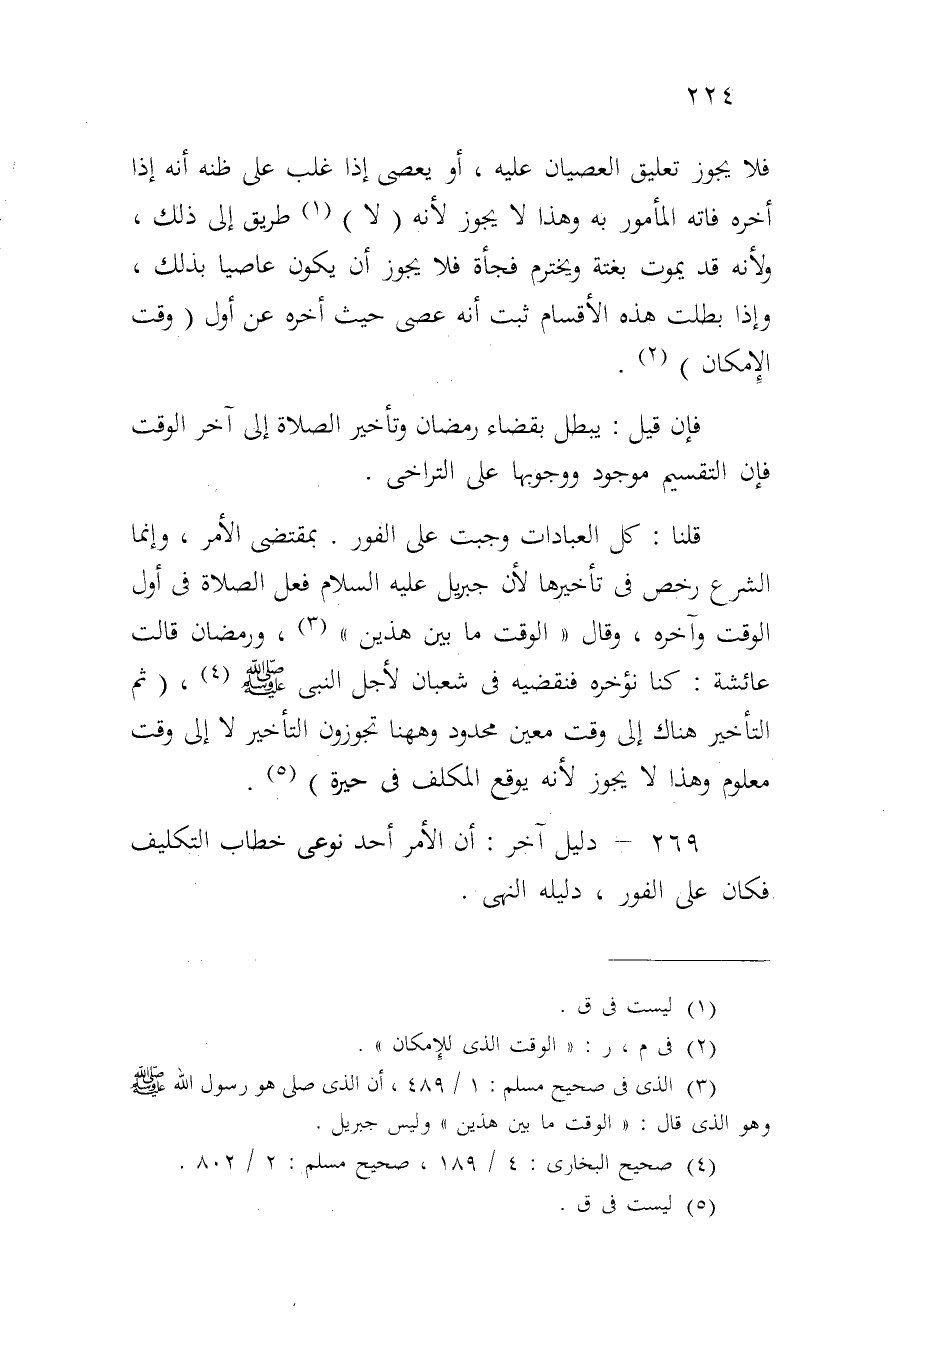 ٢٢٤
فلا يجوز تعليق العصيان عليه ، أو يعصى إذا غلب على ظنه أنه إذا
أخره فاته المأمور به وهذا لا يجوز لأنه ( لا ) (١) طريق إلى ذلك ،
ولأنه قد يموت بغتة ويخترم فجأة فلا يجوز أن يكون عاصيا بذلك ،
وإذا بطلت هذه الأقسام ثبت أنه عصى حيث أخره عن أول ( وقت
الإمكان ) (٢) .
فإن قيل : يبطل بقضاء رمضان وتأخير الصلاة إلى آخر الوقت
فإن التقسيم موجود ووجوبها على التراخى .
قلنا : كل العبادات وجبت على الفور . بمقتضى الأمر ، وإنما
الشرع رخص فى تأخيرها لأن جبريل عليه السلام فعل الصلاة فى أول
الوقت وآخره ، وقال « الوقت ما بين هذين » (٣) ، ورمضان قالت
عائشة : كنا نؤخره فنقضيه فى شعبان لأجل النبى ﷺ (٤) ، ( ثم
التأخير هناك إلى وقت معين محدود وههنا تجوزون التأخير لا إلى وقت
معلوم وهذا لا يجوز لأنه يوقع المكلف فى حيرة ) (٥) .
٢٦٩ – دليل آخر : أن الأمر أحد نوعى خطاب التكليف
فكان على الفور ، دليله النهى .
(١) ليست فى ق .
(٢) فى م ، ر : « الوقت الذى للإمكان » .
(٣) الذى فى صحيح مسلم : ١ / ٤٨٩ ، أن الذى صلى هو رسول الله ﷺ
وهو الذى قال : « الوقت ما بين هذين » وليس جبريل .
(٤) صحيح البخارى : ٤ / ١٨٩ ، صحيح مسلم : ٢ / ٨٠٢ .
(٥) ليست فى ق .